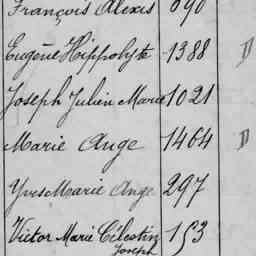 François Alexis 890
Eugène Hippolyte 1388 D
Joseph Julien Marie 1021
Marie Ange 1464 D
Yves Marie Ange 297
Victor Marie Célestin 153
Joseph